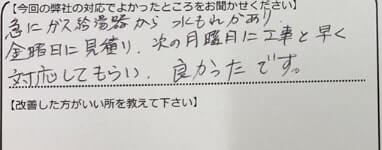 【今回の弊社の対応でよかったところをお聞かせください】
急にガス給湯器から水もれがあり、
金曜日に見積り、次の月曜日に工事と早く
対応してもらい、良かったです。
【改善した方がいい所を教えて下さい】